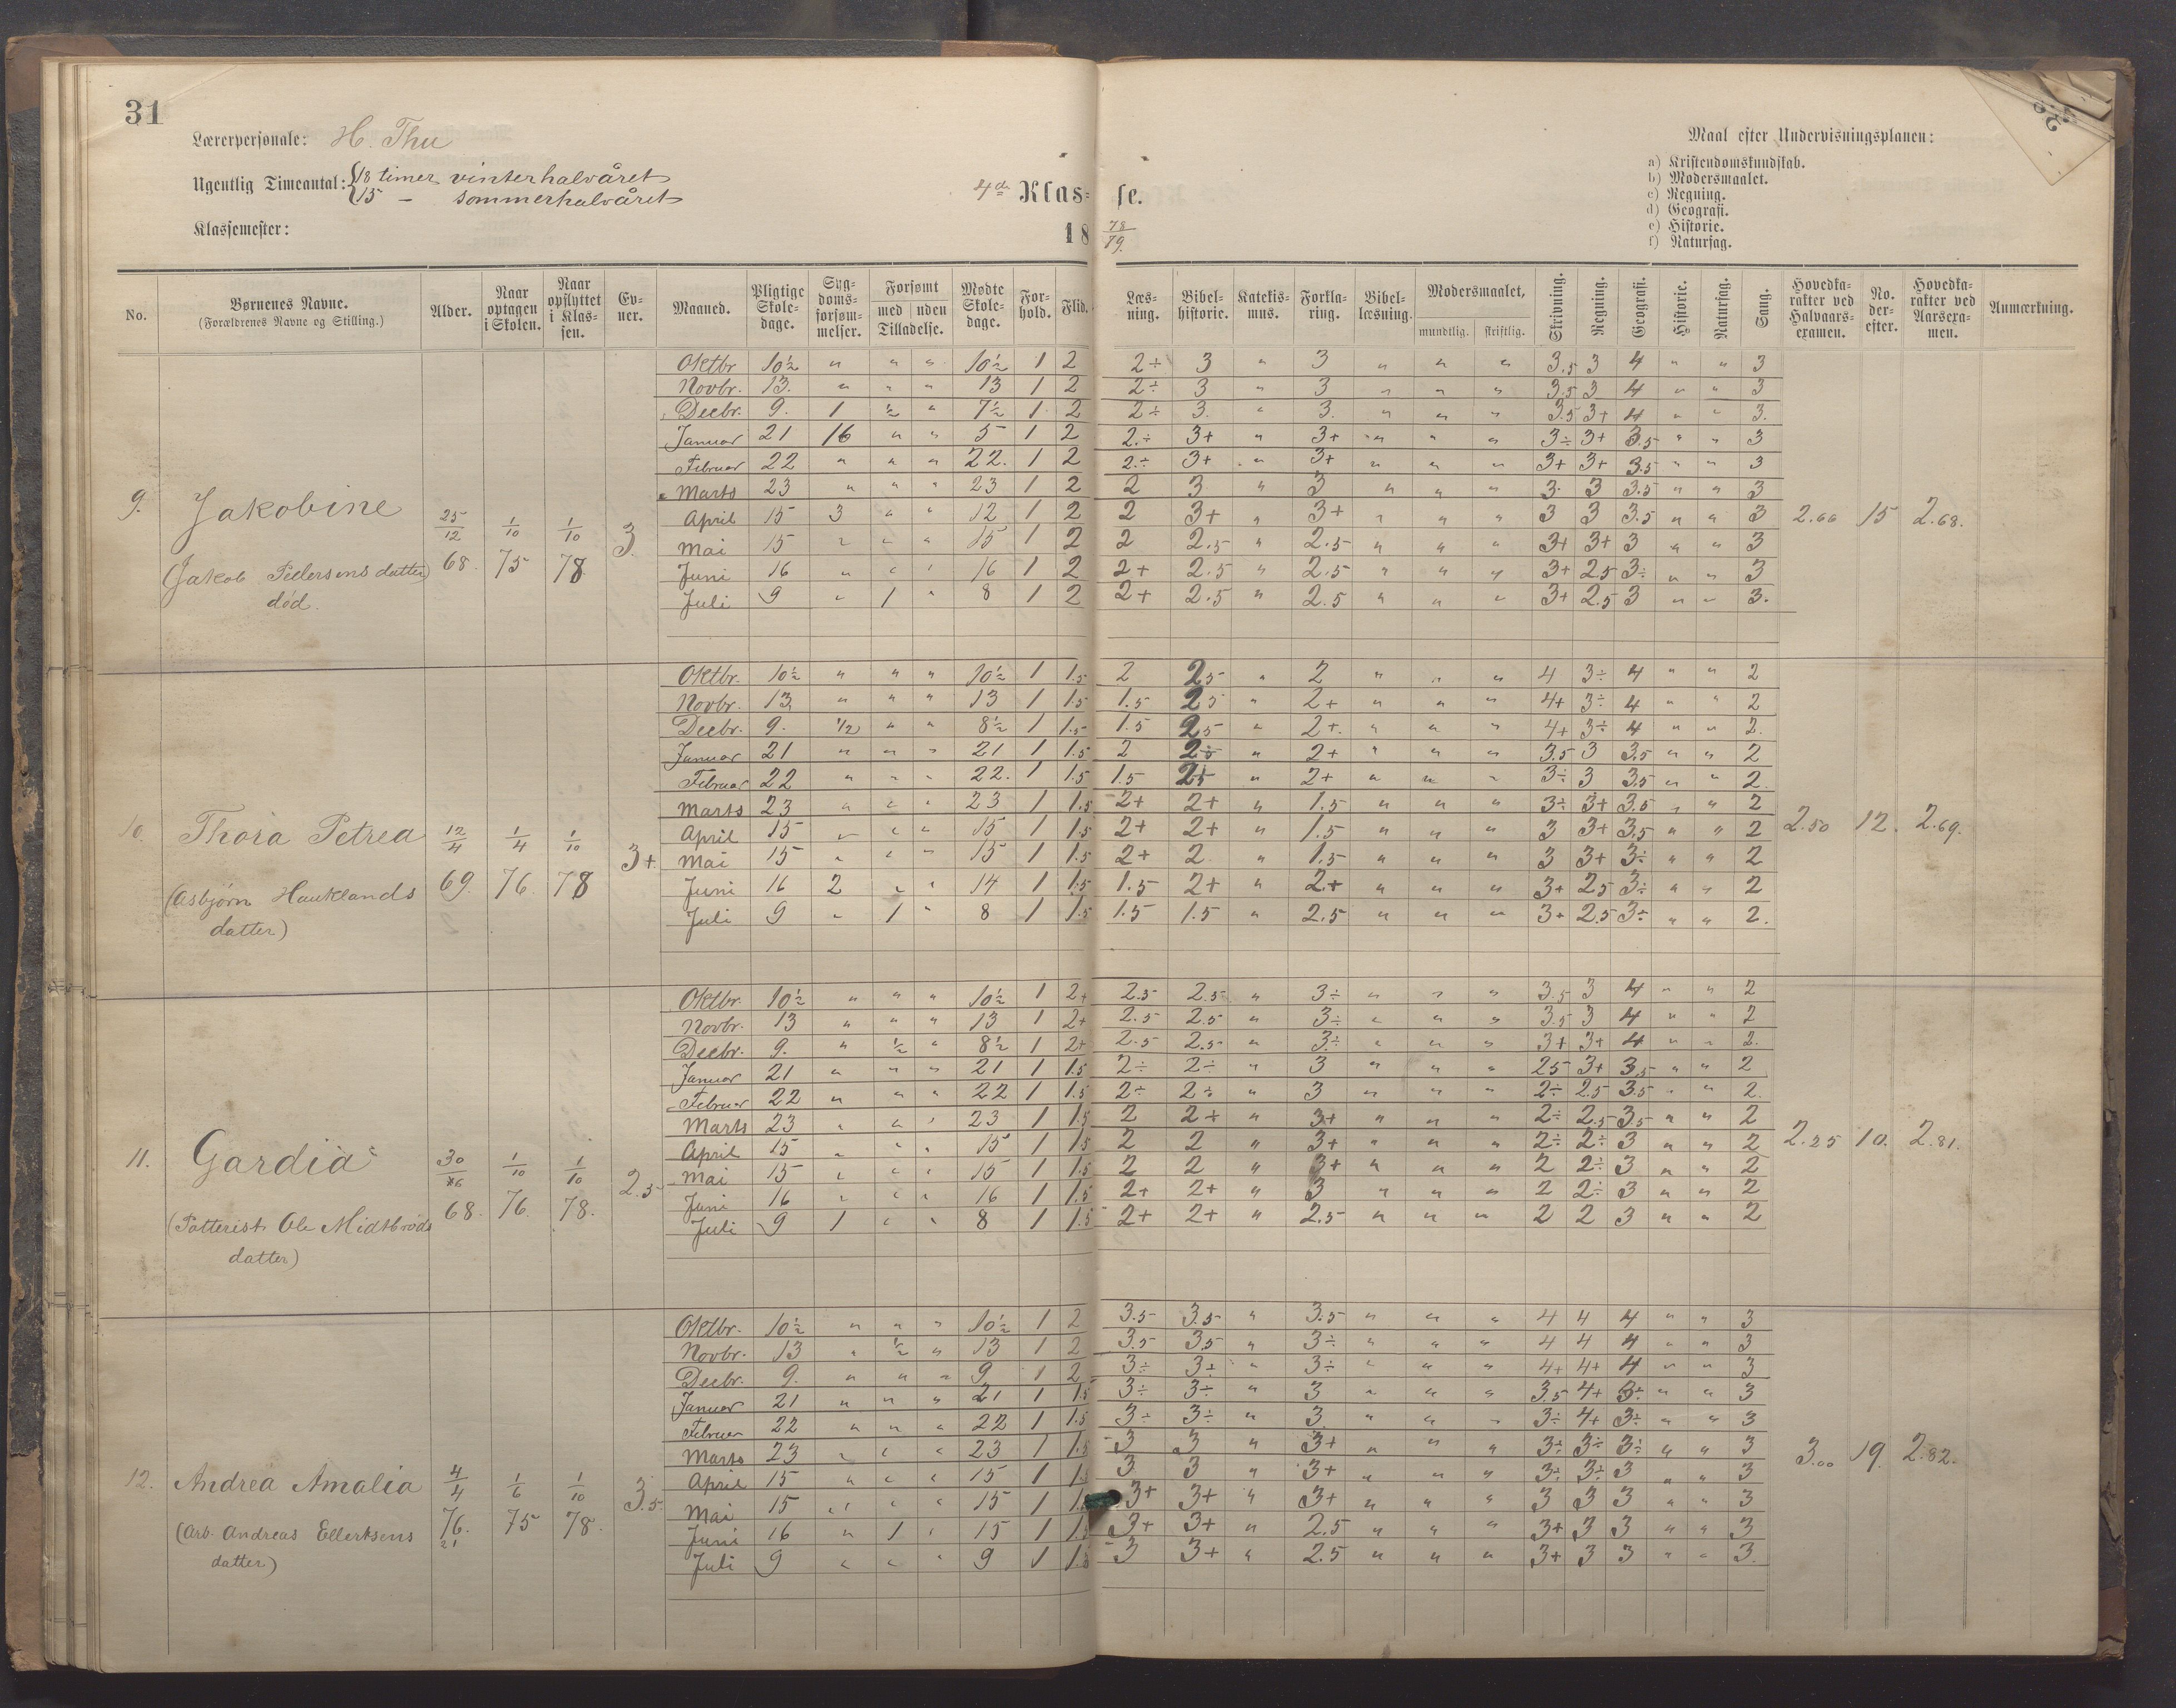 31
Lærerpersonale: H. Thu
Ugentlig Timeantal: {18 timer vinterhalvåret
{15 — sommerhalvåret
4de Klas- se.
Klassemester:
18 78/79.
Maal efter Undervisningsplanen:
a) Kristendomskundskab.
b) Modersmaalet.
c) Regning.
d) Geografi.
e) Historie.
f) Naturfag.
No. | Børnenes Navne. (Forældrenes Navne og Stilling.) | Alder. | Naar optagen i Skolen. | Naar opflyttet i Klassen. | Evner. | Maaned. | Pligtige Skoledage. | Sygdomsforsømmelser. | Forsømt med uden Tilladelse. | Mødte Skoledage. | Forhold. | Flid. | Læsning. | Bibelhistorie. | Katekismus. | Forklaring. | Bibellæsning. | Modersmaalet, mundtlig. skriftlig. | Skrivning. | Regning. | Geografi. | Historie. | Naturfag. | Sang. | Hovedkarakter ved Halvaarsexamen. | No. derefter. | Hovedkarakter ved Aarsexamen. | Anmærkning.
9. Jakobine (Jakob Pedersens datter) død. 25/12 68. 1/10 75 1/10 78 3. 2.66 15 2.68.
Oktbr 10½ " " " 10½ 1 2 2+ 3 " 3 " " " 3.5 3 4 " " 3
Novbr. 13. " " " 13 1 2 2÷ 3 " 3 " " " 3.5 3 4 " " 3
Decbr. 9. 1 ½ " 7½ 1 2 2÷ 3. " 3. " " " 3.5 3+ 4 " " 3.
Januar 21 16 " " 5 1 2 2.÷ 3+ " 3+ " " " 3÷ 3+ 3.5 " " 3
Februar 22 " " " 22. 1 2 2.÷ 3+ " 3+ " " " 3+ 3+ 3.5 " " 3
Marts 23 " " " 23 1 2 2 3 " 3 " " " 3 3 3.5 " " 3
April 15 3 " " 12 1 2 2 3+ " 3+ " " " 3 3 3.5 " " 3
Mai 15 " " " 15 1 2 2 2.5 " 2.5 " " " 3+ 3+ 3 " " 3
Juni 16 " " " 16 1 2 2+ 2.5 " 2.5 " " " 3+ 2.5 3÷ " " 3
Juli 9 " 1 " 8 1 2 2+ 2.5 " 2.5 " " " 3+ 2.5 3 " " 3.
10. Thora Petrea (Asbjørn Hauklands datter) 12/4 69. 1/4 76. 1/10 78 3+. 2.50 12. 2.69.
Oktbr. 10½ " " " 10½ 1 1.5 2 2.5 " 2 " " " 4 3÷ 4 " " 2
Novbr. 13. " " " 13 1 1.5 1.5 2.5 " 2+ " " " 4+ 3÷ 4 " " 2
Decbr. 9. 1/2 " " 8½ 1 1.5 1.5 2.5 " 2+. " " " 4+ 3÷ 4 " " 2.
Januar 21 " " " 21 1 1.5 2 2÷ " 2+ " " " 3.5 3 3.5 " " 2
Februar 22 " " " 22. 1 1.5 1.5 2+ " 2+ " " " 3÷ 3 3.5 " " 2.
Marts 23 " " " 23 1 1.5 2+ 2+ " 1.5 " " " 3÷ 3+ 3.5 " " 2
April 15 " " " 15 1 1.5 2+ 2+ " 1.5 " " " 3 3+ 3.5 " " 2
Mai 15 " " " 15 1 1.5 2+ 2 " 1.5 " " " 3 3+ 3÷ " " 2
Juni 16 2 " " 14 1 1.5 1.5 2+ " 2+ " " " 3+ 2.5 3÷ " " 2
Juli 9 " 1 " 8 1 1.5 1.5 1.5 " 2.5 " " " 3+ 2.5 3÷ " " 2.
11. Gardia (Potterist Ole Midtbrøds datter) 30/6 68. 1/10 76. 1/10 78. 2.5 2.25 10. 2.81.
Oktbr. 10½ " " " 10½ 1 2+ 2.5 2.5 " 3÷ " " " 3.5 3 4 " " 2
Novbr. 13 " " " 13 1 2+ 2.5 2.5 " 3÷ " " " 3.5 3 4 " " 2
Decbr. 9. " ½ " 8½ 1 2+ 2.5 2.5 " 3÷ " " " 3+ 3+ 4 " " 2.
Januar 21 " " " 21 1 1.5 2÷ 2÷ " 3 " " " 2.5 3+ 3.5 " " 2
Februar 22 " " " 22 1 1.5 2÷ 2÷ " 3 " " " 2÷ 2.5 3.5 " " 2.
Marts 23 " " " 23 1 1.5 2 2+ " 3+ " " " 2÷ 2.5 3.5 " " 2
April 15 " " " 15 1 1.5 2 2 " 3+ " " " 2÷ 2÷ 3 " " 2
Mai 15 " " " 15 1 1.5 2 2 " 3+ " " " 2 2÷ 3 " " 2
Juni 16 " " " 16 1 1.5 2+ 2+ " 3 " " " 2 2÷ 3 " " 2
Juli 9 1 " " 8 1 1.5 2+ 2+ " 2.5 " " " 2 2 3 " " 2
12. Andrea Amalia (Arb. Andreas Ellertsens datter) 4/4 76. 21 1/6 75 1/10 78. 3.5. 3.00 19. 2.82.
Oktbr. 10½ " " " 10½ 1 2 3.5 3.5 " 3.5 " " " 4 4 4 " " 3
Novbr. 13 " ½ " 13 1 2 3.5 3.5 " 3÷ " " " 4 4 4 " " 3
Decbr. 9. " " " 9 1 2 3÷ 3÷ " 3÷ " " " 4+ 4+ 4 " " 3
Januar 21 " " " 21 1 1.5 3÷ 3÷ " 3 " " " 3.5 4+ 3÷ " " 3
Februar 22 " " " 22 1 1.5 3÷ 3÷ " 3 " " " 3÷ 4+ 3÷ " " 3
Marts 23 " " " 23 1 1.5 3 3 " 3+ " " " 3÷ 3÷ 3÷ " " 3
April 15 " " " 15 1 1.5 3 3 " 3+ " " " 3÷ 3÷ 3 " " 3
Mai 15 " " " 15 1 3+ 3+ " 3+ " " " 3 3 3 " " 3
Juni 16 " 1 " 15 1 1.5 3+ 3+ " 2.5 " " " 3+ 3 3 " " 3
Juli 9 " " " 9 1 3 3+ " 2.5 " " " 3+ 3 3 " " 3.